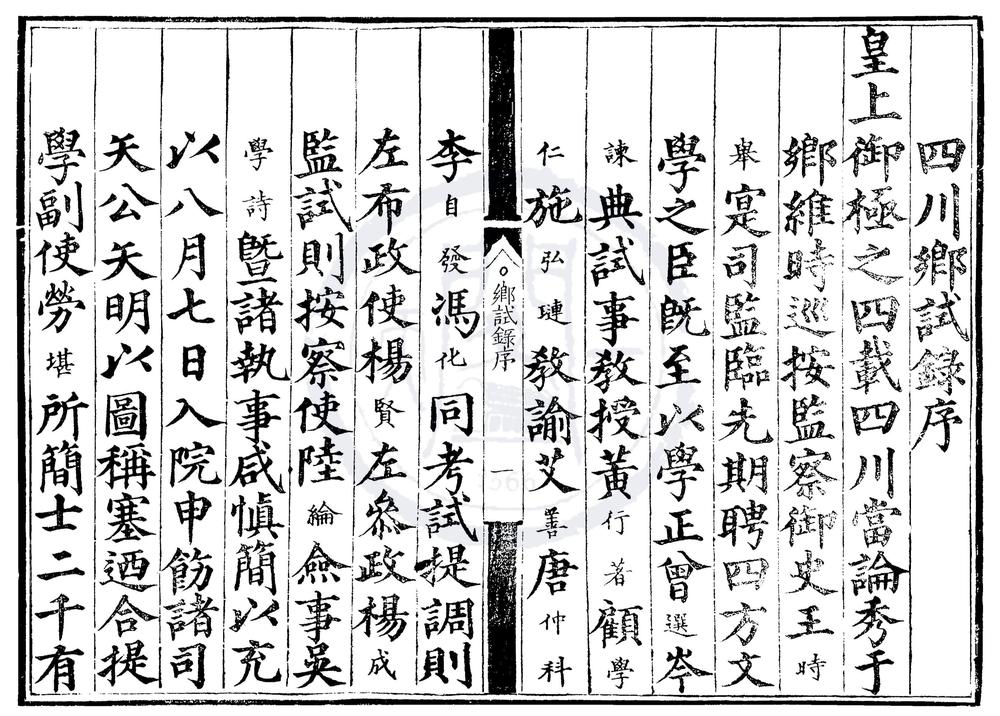 四川鄉試錄序
皇上御極之四載四川當論秀于
鄉維時巡按監察御史王時
舉寔司監臨先期聘四方文
學之臣旣至以學正曾選岑
諫典試事教授黃行著顧學
仁施弘璉教諭艾善唐仲科
鄉試錄序 一
李自發馮化同考試提調則
左布政使楊賢左叅政楊成
監試則按察使陸綸僉事吳
學詩曁諸執事咸慎簡以充
以八月七日入院申飭諸司
矢公矢明以圖稱塞迺合提
學副使勞堪所簡士二千有